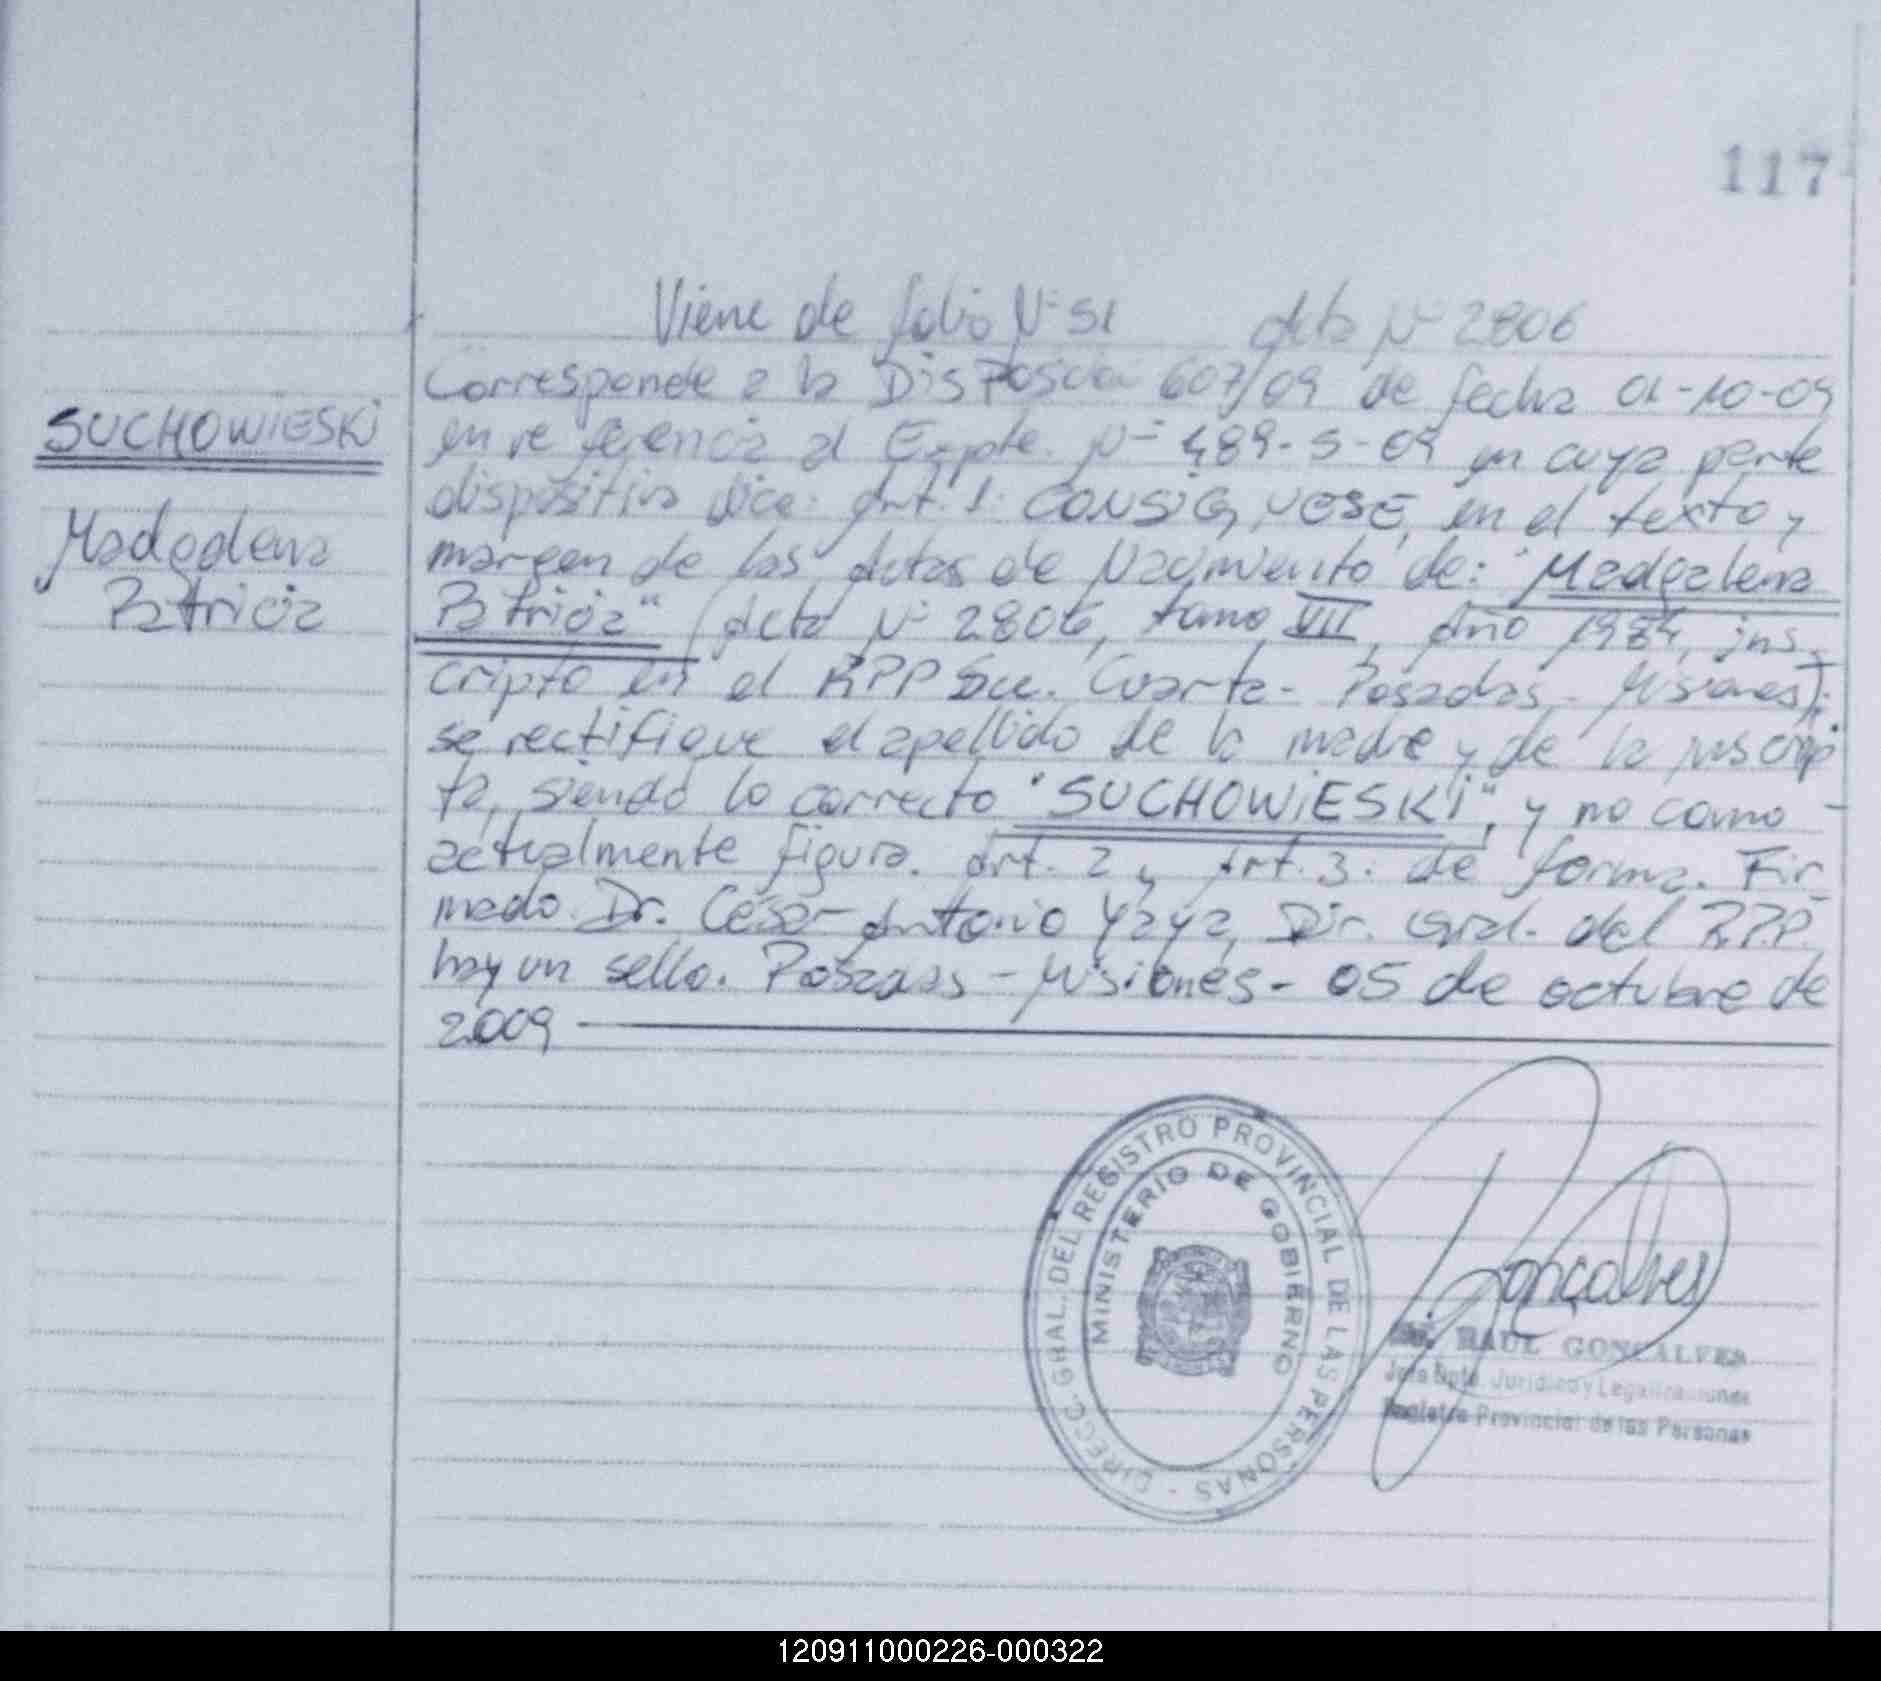 117
Viene de folio Nº 51 Acta Nº 2806
SUCHOWIESKI
Madgalena
Patricia
Corresponde a la Disposición 607/09 de fecha 01-10-09
en referencia al Expte. Nº 489-S-09 en cuya parte
dispositiva dice: Art. 1: CONSIGNESE, en el texto y
margen de las Actas de Nacimiento de: "Madgalena
Patricia" (Acta Nº 2806, tomo VII, Año 1984, ins-
cripto en el RPP Sec. Cuarta- Posadas- Misiones):
se rectifique el apellido de la madre y de la inscrip
ta, siendo lo correcto "SUCHOWIESKI", y no como
actualmente figura. Art. 2 y Art. 3: de forma. Fir-
mado. Dr. César Antonio Yaya, Dir. Gral. del R.P.P.
hay un sello. Posadas - Misiones - 05 de octubre de
2009
DIRECC. GRAL. DEL REGISTRO PROVINCIAL DE LAS PERSONAS -
MINISTERIO DE GOBIERNO
Goncalves
RAUL GONCALVES
Jefe Dpto. Jurídico y Legalizaciones
Registro Provincial de las Personas
120911000226-000322